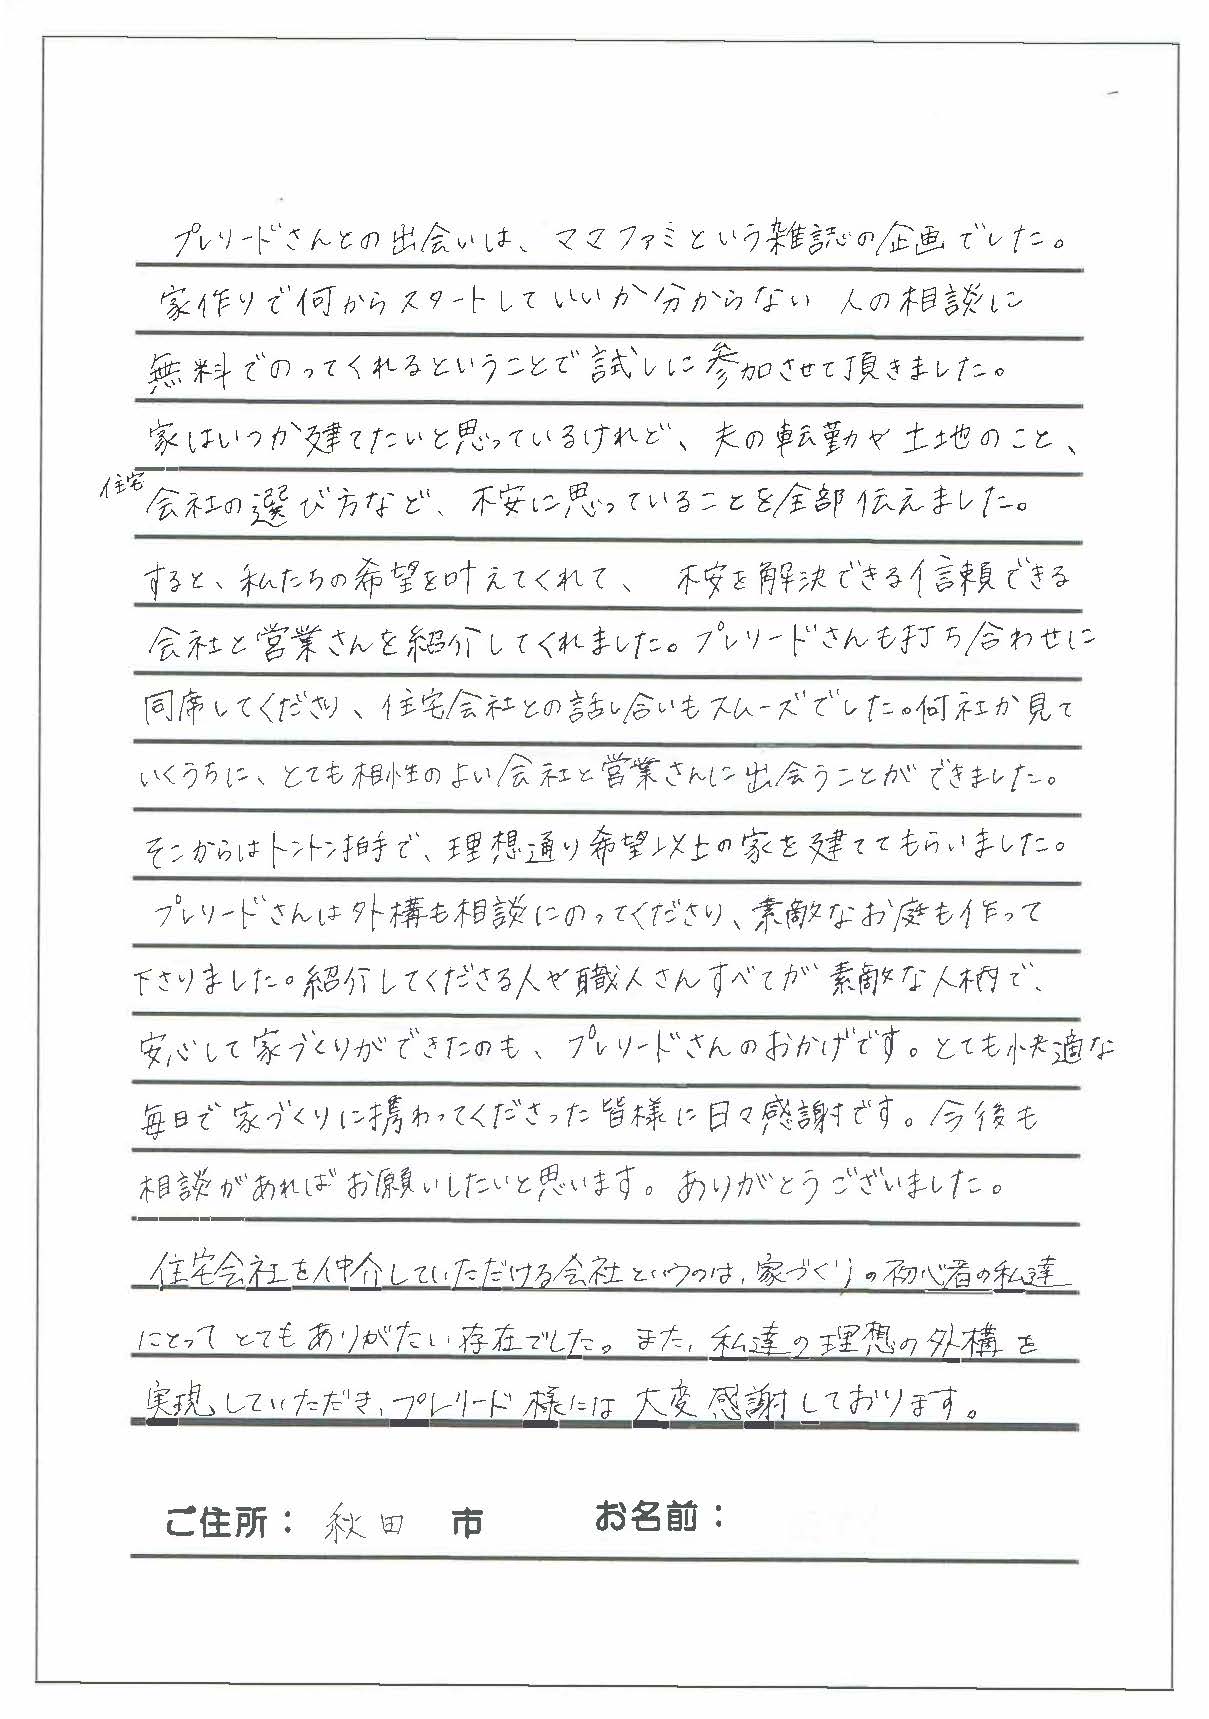 プレリードさんとの出会いは、ママファミという雑誌の企画でした。
家作りで何からスタートしていいか分からない 人の相談に
無料でのってくれるということで試しに参加させて頂きました。
家はいつか建てたいと思っているけれど、夫の転勤や土地のこと、
住宅
会社の選び方など、不安に思っていることを全部伝えました。
すると、私たちの希望を叶えてくれて、 不安を解決できる信頼できる
会社と営業さんを紹介してくれました。プレリードさんも打ち合わせに
同席してくださり、住宅会社との話し合いもスムーズでした。何社か見て
いくうちに、とても相性のよい会社と営業さんに出会うことができました。
そこからはトントン拍手で、理想通り希望以上の家を建ててもらいました。
プレリードさんは外構も相談にのってくださり、素敵なお庭も作って
下さりました。紹介してくださる人や職人さんすべてが素敵な人柄で、
安心して家づくりができたのも、プレリードさんのおかげです。とても快適な
毎日で家づくりに携わってくださった皆様に日々感謝です。今後も
相談があればお願いしたいと思います。ありがとうございました。
住宅会社を仲介していただける会社というのは、家づくりの初心者の私達
にとってとてもありがたい存在でした。また、私達の理想の外構を
実現していただき、プレリード様には大変感謝しております。
ご住所： 秋田 市 お名前：